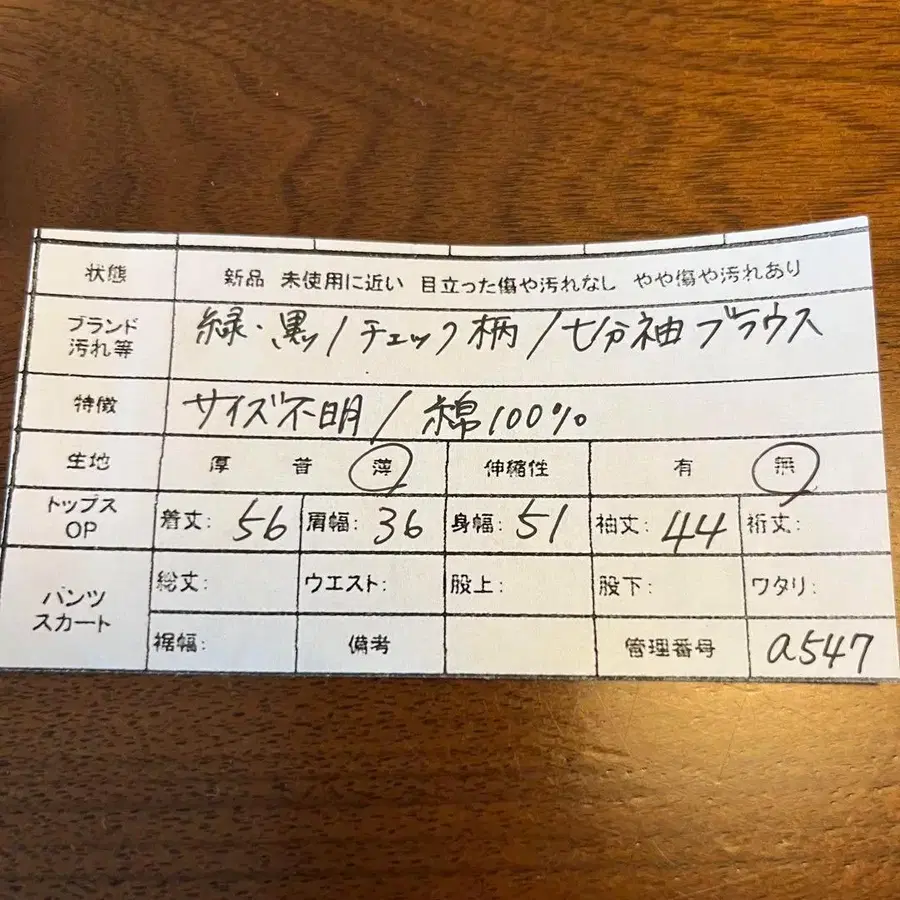 状態 新品 未使用に近い 目立った傷や汚れなし やや傷や汚れあり
ブランド 汚れ等 緑・黒/チェック柄/七分袖ブラウス
特徴 サイズ不明/綿100%
生地 厚 普 薄 伸縮性 有 無
トップス OP 着丈: 56 肩幅: 36 身幅: 51 袖丈: 44 裄丈:
パンツ スカート 総丈: ウエスト: 股上: 股下: ワタリ:
裾幅: 備考 管理番号 a547